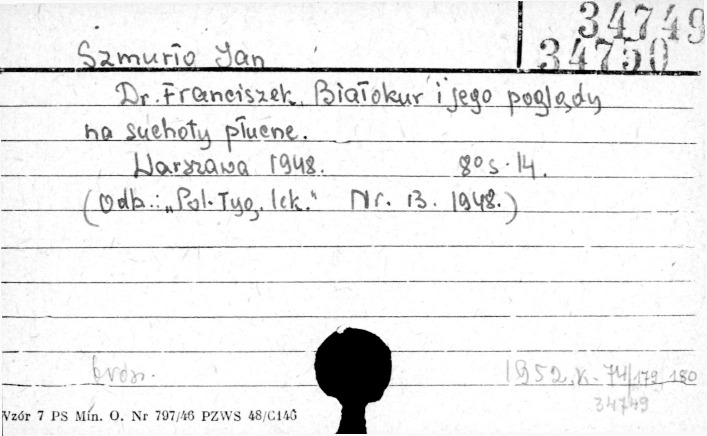 34749
Szmurło Jan 34750
Dr. Franciszek Białokur i jego poglądy
na suchoty płucne.
Warszawa 1948. 8° s. 14.
(Odb.: „Pol. Tyg. lek.“ Nr. 13. 1948.)
brosz. 1952, K. 74/179, 180
34749
Wzór 7 PS Min. O. Nr 797/46 PZWS 48/C146